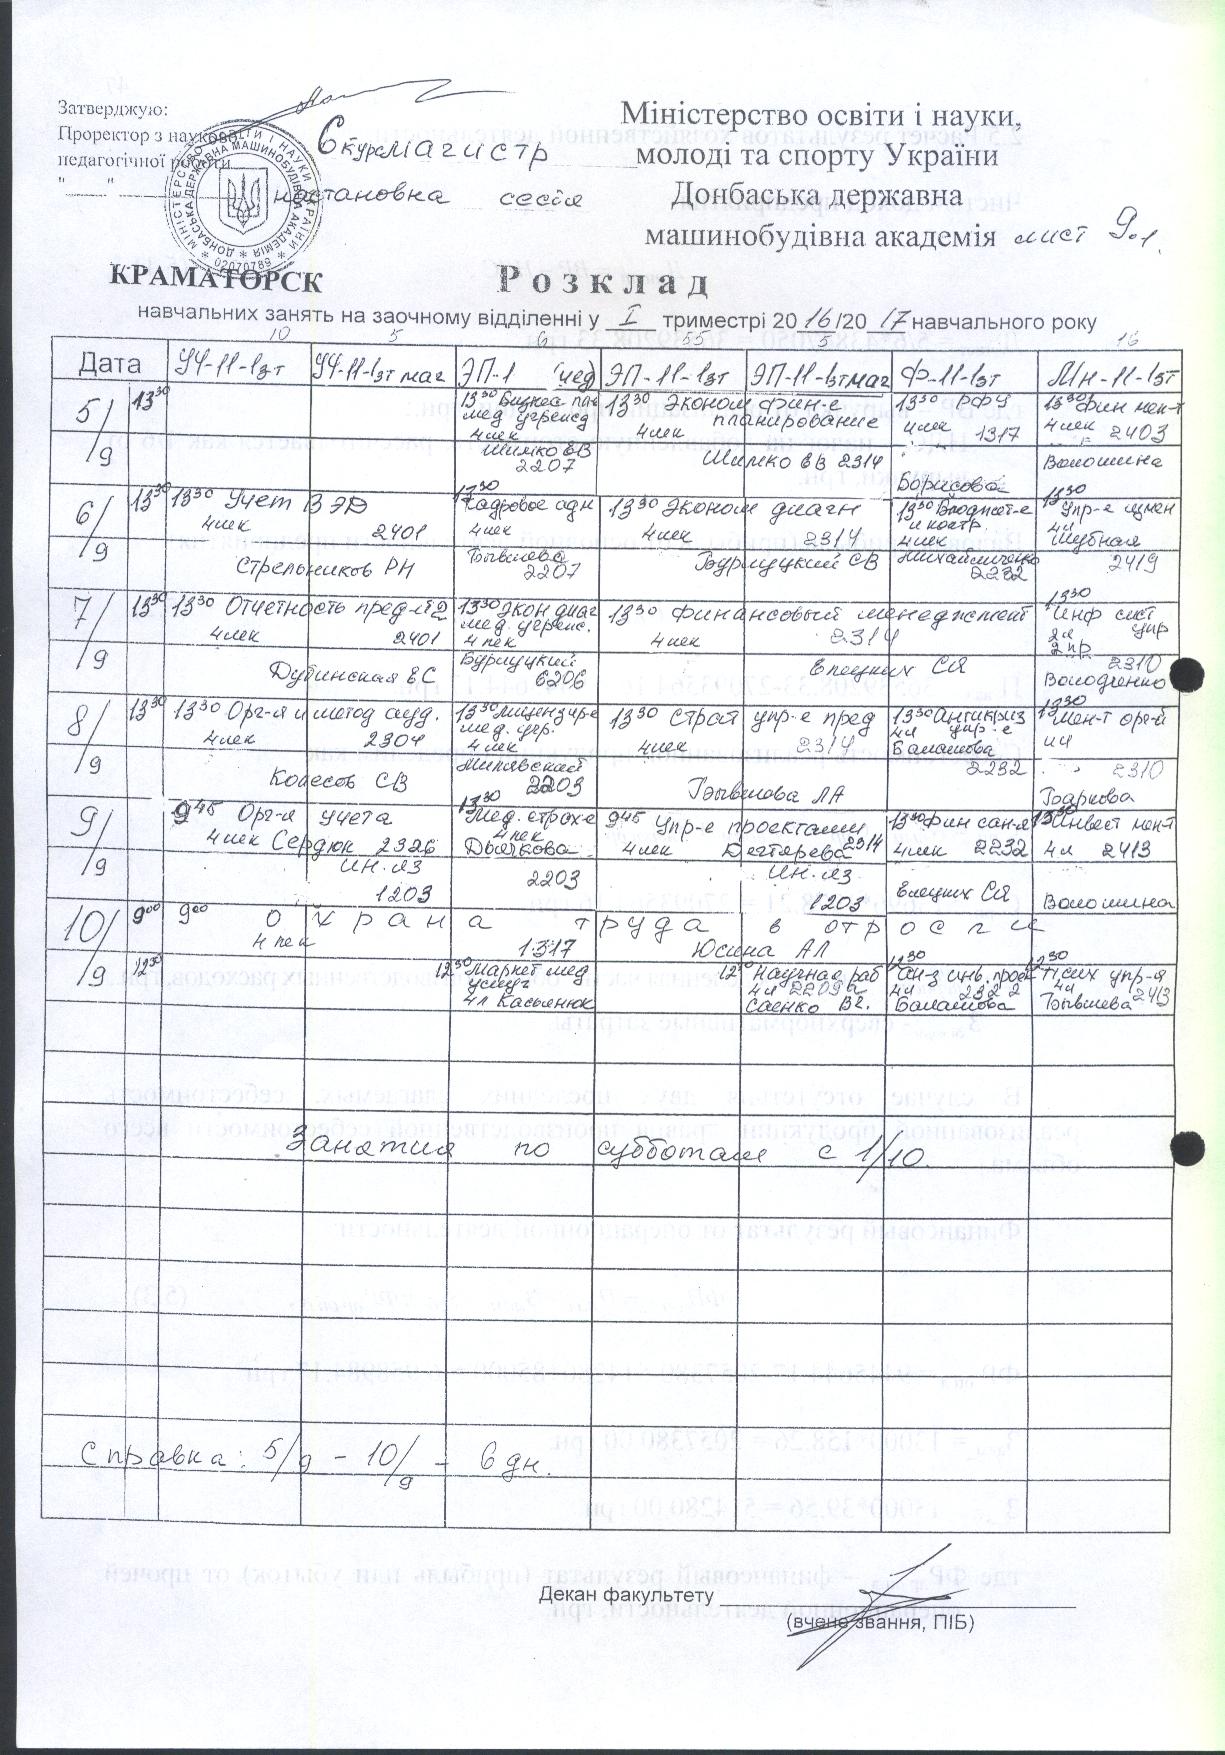 Затверджую:
Проректор з науково-
педагогічної роботи
"____" 
6 курс магистр
настановна сесія
Міністерство освіти і науки,
молоді та спорту України
Донбаська державна
машинобудівна академія лист 9.1.
КРАМАТОРСК
Розклад
навчальних занять на заочному відділенні у I триместрі 2016/2017 навчального року
10 5 6 55 5 16
Дата УЧ-11-1зт УЧ-11-1зт маг ЭП-1 (мед) ЭП-11-1зт ЭП-11-1зтмаг Ф-11-1зт Мн-11-1зт
5/9 13 30
13 30 Бизнес пл-е
мед. учрежд
4 лек
Шимко ЕВ
2207
13 30 Эконом фин-е планирование
4 лек
Шимко ЕВ 2314
13 30 РФУ
4 лек 1317
Борисова
13 30 Фин мен-т
4 лек 2403
Волошина
6/9 13 30
13 30 Учет ВЭД
4 лек 2401
Стрельников РН
13 30
Кадровое адм
4 лек
Бывшева
2207
13 30 Эконом диагн
4 лек 2314
Бурлуцкий СВ
13 30 Бюджет-е
и контр.
4 лек
Михайличенко
2232
13 30
Упр-е измен
4 л
Шубная
2419
7/9 13 30
13 30 Отчетность пред-ий
4 лек 2401
Дубинская ЕС
13 30 Экон диаг
мед. учрежд.
4 лек
Бурлуцкий
6206
13 30 Финансовый менеджмент
4 лек 2314
Елецких СЯ
13 30
Инф сист
упр
2 л
2 пр
2310
Володченко
8/9 13 30
13 30 Орг-я и метод ауд.
4 лек 2304
Колесов СВ
13 30 Лицензир-е
мед. учр.
4 лек
Милявский
2203
13 30 Страт упр-е пред
4 лек 2314
Бывшова ЛА
13 30 Антикриз
4 л упр-е
Балашова
2232
13 30
Мен-т орг-й
4 л
2310
Баркова
9/9
9 45 Орг-я учета
4 лек Сердюк 2326
ин. яз
1203
13 30
Мед. страх-е
4 лек
Дьячкова
2203
9 45 Упр-е проектами
4 лек Дегтярева 2314
ин. яз
1203
13 30 Фин сан-я
4 лек 2232
Елецких СЯ
13 30 Инвест мен-т
4 л 2413
Волошина
10/9 9 00
9 00 Охрана труда в отросли
4 лек 1317 Юсина АЛ
12 30
12 30 Маркет мед
услуг
4 л Касьянюк
12 30 Научная раб
4 л 2209а
Саенко ВГ.
12 30
Ан-з инв. проек
4 л 2322
Балашова
12 30
Псих упр-я
4 л
Бывшева 2413
Занятия по субботам с 1/10.
Справка: 5/9 - 10/9 - 6 дн.
Декан факультету
(вчене звання, ПІБ)